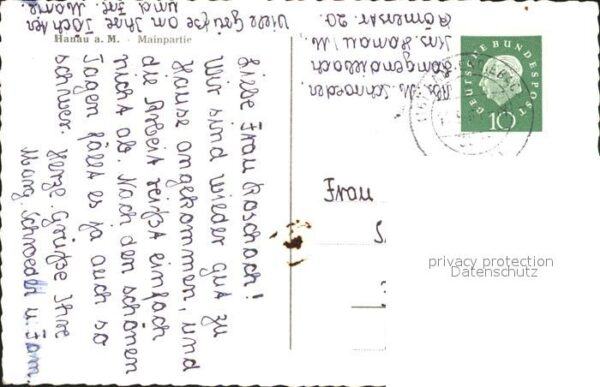 Hanau a. M. - Mainpartie
Liebe Frau Roschach!
Wir sind wieder gut zu
Hause angekommen, und
die Arbeit reißt einfach
nicht ab. Nach den schönen
Tagen fällt es ja auch so
schwer. Herzl. Grüße Ihre
Marg. Schroeder u. Fam.
Viele Grüße an Ihre Tochter
und Fr.
Abs. M. Schroeder
Langendiebach
Krs. Hanau/M.
Römerstr. 20.
DEUTSCHE BUNDESPOST
10
Frau
privacy protection
Datenschutz